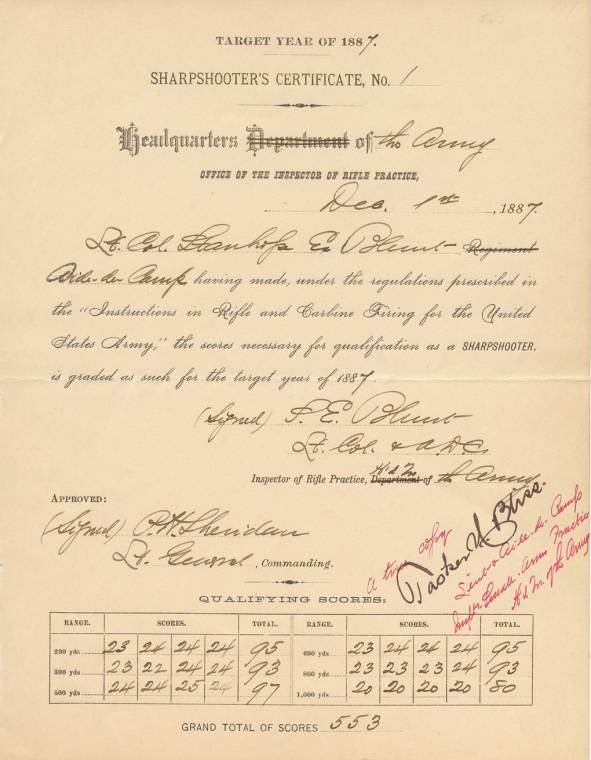 TARGET YEAR OF 1887.
SHARPSHOOTER'S CERTIFICATE, No. 1
Headquarters Department of the Army
OFFICE OF THE INSPECTOR OF RIFLE PRACTICE,
Dec. 1st, 1887.
Lt. Col. Stanhope E. Blunt Regiment
Aide-de-Camp having made, under the regulations prescribed in
the "Instructions in Rifle and Carbine Firing for the United
States Army," the scores necessary for qualification as a SHARPSHOOTER,
is graded as such for the target year of 1887.
(Signed) S. E. Blunt
Lt. Col. & A.D.C.
Inspector of Rifle Practice, Hd Qr. Department of the Army
APPROVED:
(Signed) P. H. Sheridan
Lt. General, Commanding.
a true copy
Tasker H. Bliss.
Lieut & Aide-de-Camp
Small Arms Practice
Hd Qr. of the Army
QUALIFYING SCORES:
RANGE. SCORES. TOTAL. RANGE. SCORES. TOTAL.
200 yds. 23 24 24 24 95 600 yds. 23 24 24 24 95
300 yds. 23 22 24 24 93 800 yds. 23 23 23 24 93
500 yds. 24 24 25 24 97 1,000 yds. 20 20 20 20 80
GRAND TOTAL OF SCORES 553